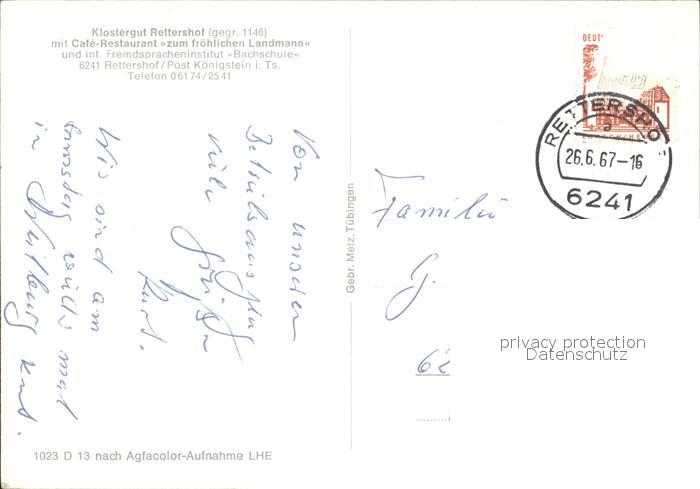 Klostergut Rettershof (gegr. 1146)
mit Café-Restaurant »zum fröhlichen Landmann«
und int. Fremdspracheninstitut »Bachschule«
6241 Rettershof/Post Königstein i. Ts.
Telefon 06174/2541
Von unserem
Betriebsausflug
viele Grüße
Kurt.
Wir sind am
Samstag
in
Kurt.
Gebr. Metz, Tübingen
DEUT
RETTERSHOF
a
26.6.67-16
6241
Familie
G.
62
privacy protection
Datenschutz
1023 D 13 nach Agfacolor-Aufnahme LHE